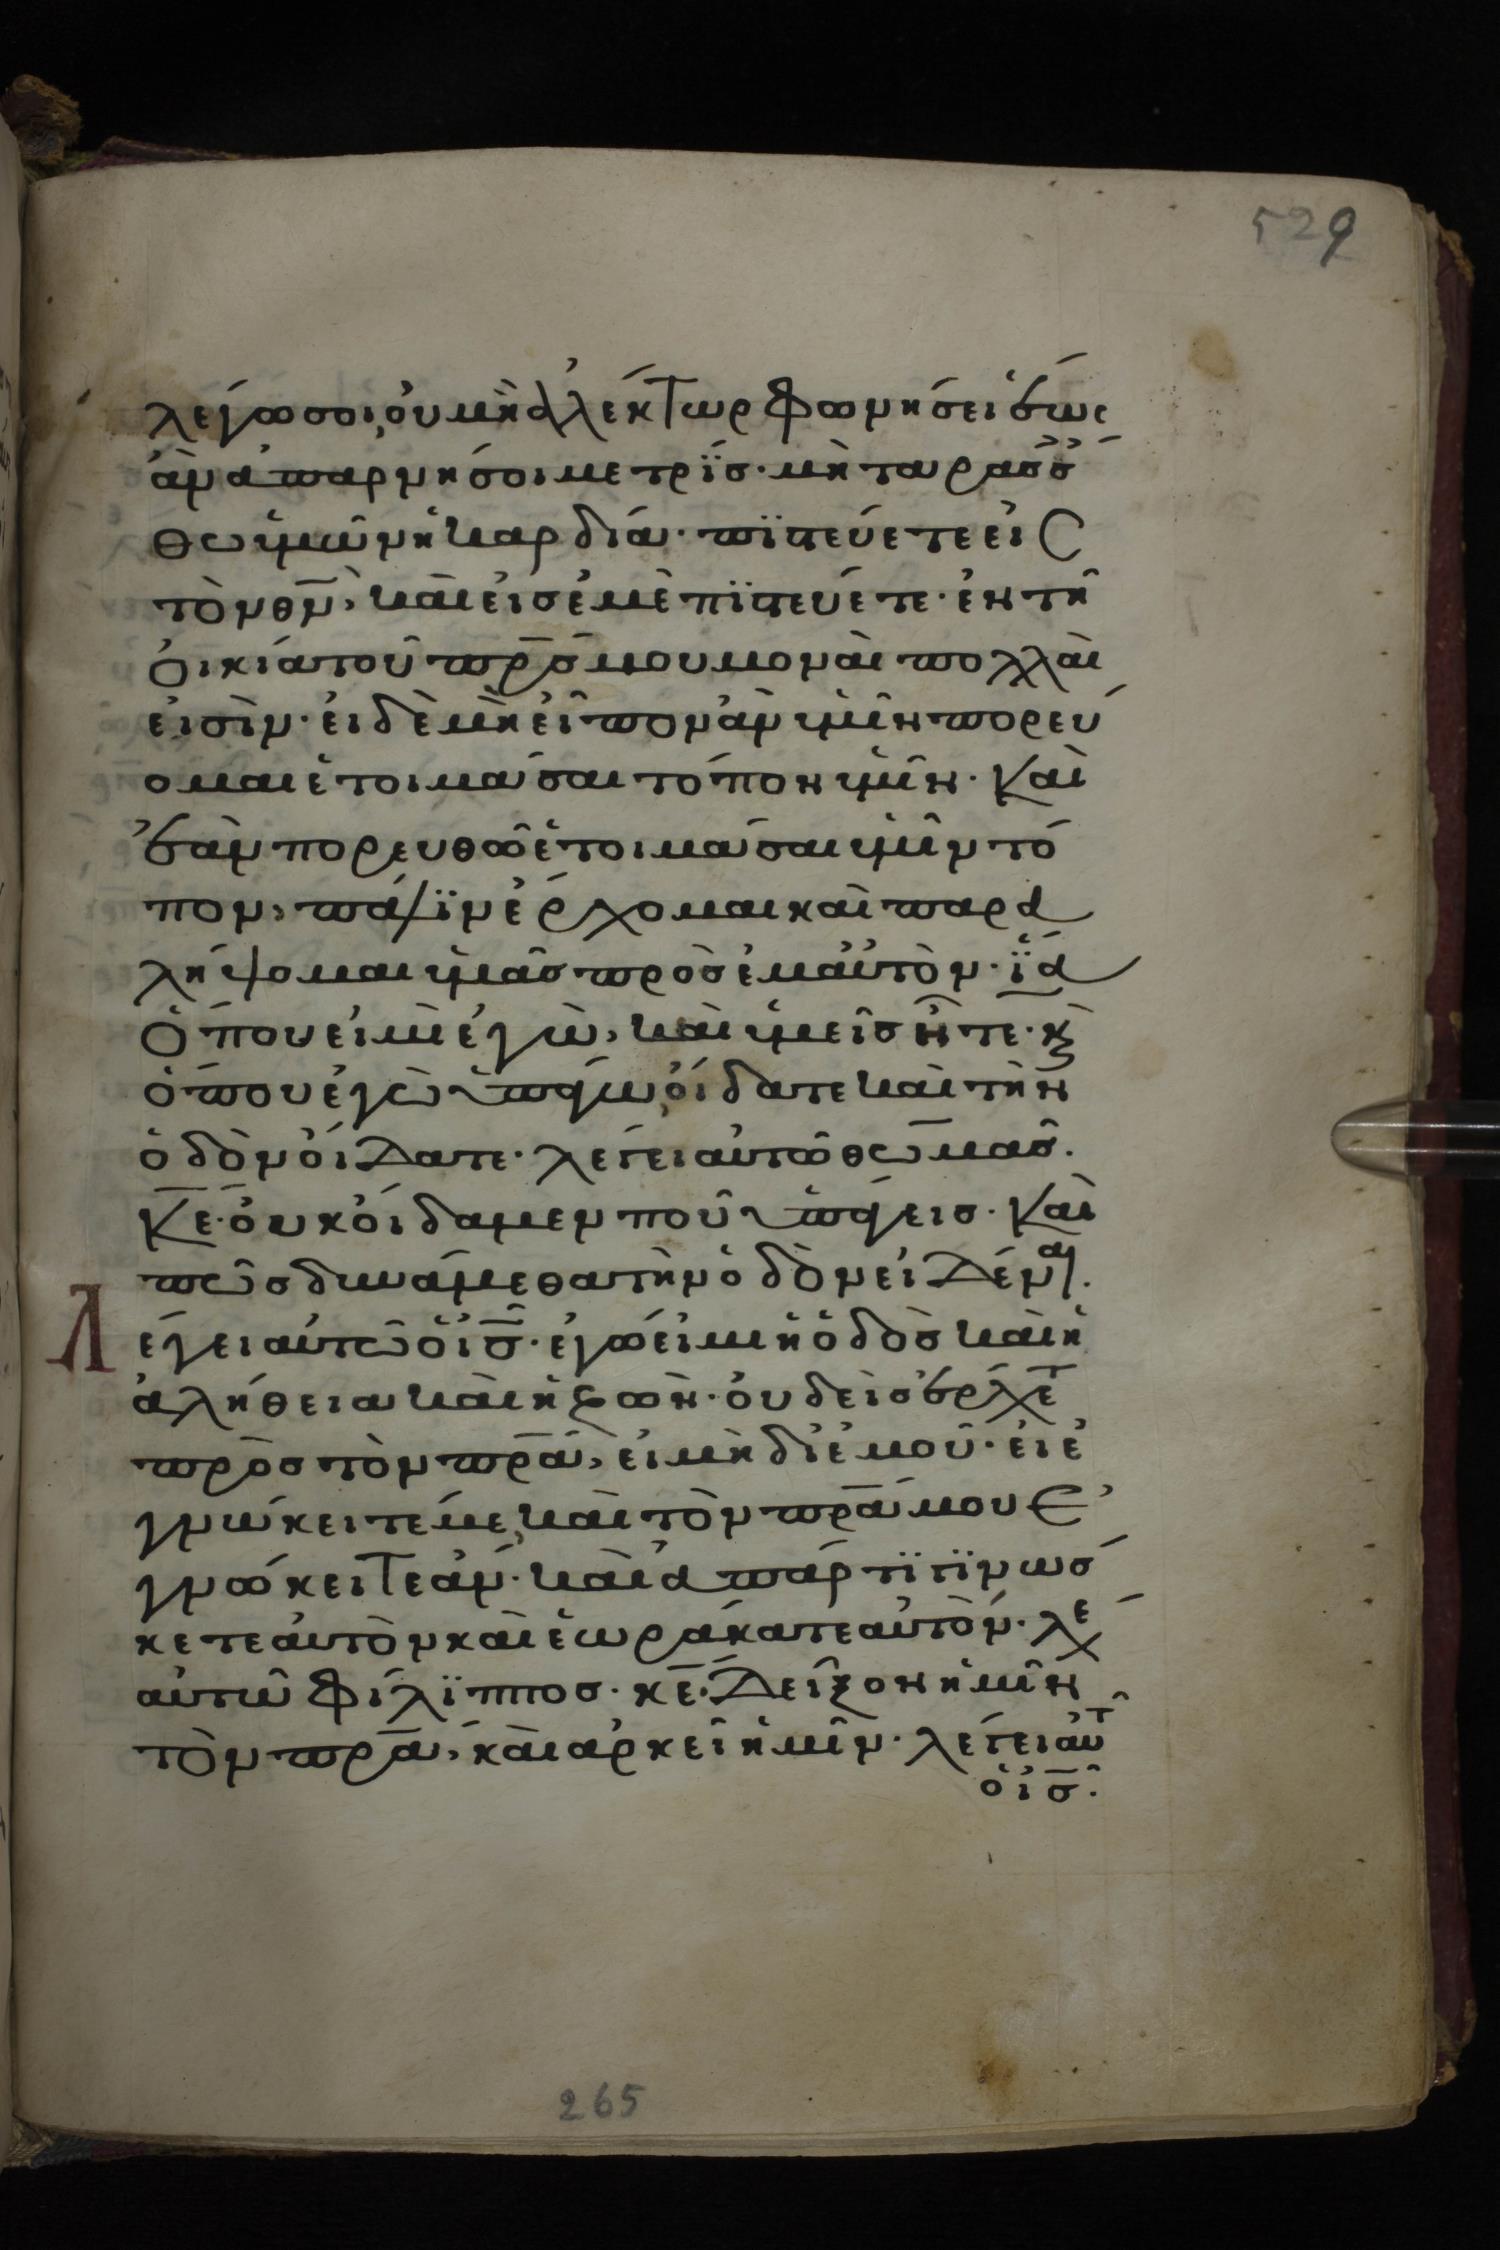 529
λέγω σοι, οὐ μὴ ἀλέκτωρ φωνήσει ἕως
ἂν ἀπαρνήσοι με τρϊσ· μὴ ταρασσέσ
θω ὑμῶν ἡ καρδία· πϊστεύετε εἰς
τὸν θν̄, καὶ εἰσ ἐμὲ πϊστεύετε· ἐν τῆ
οἰκία τοῦ πρ̄σ μου μοναὶ πολλαὶ
εἰσὶν· εἰ δὲ μὴ εἶπον ἂν ὑμῖν πορεύ
ομαι ἑτοιμάσαι τόπον ὑμῖν· Καὶ
ἐὰν πορευθῶ ἑτοιμάσαι ὑμῖν τό
πον, πάλϊν ἔρχομαι καὶ παρα
λήψομαι ὑμᾶσ πρὸσ ἐμαυτὸν· ἵ̈να
ὅπου εἰμὶ ἐγὼ, καὶ ὑμεῖσ ἦτε· κ̀
ὅπου ἐγὼ ὑπάγω, οἴδατε καὶ τὴν
ὁδὸν οἴδατε· λέγει αὐτῶ θωμᾶσ.
Κ̄Ε· οὐκ οἴδαμεν ποῦ ὑπάγεισ· Καὶ
πῶσ δυνάμεθα τὴν ὁδὸν εἰδέναι.
Λέγει αὐτῶ ὁ ῑσ̄· ἐγώ εἰμι ἡ ὁδὸσ καὶ ἡ
ἀλήθεια καὶ ἡ ζωὴ· οὐδεὶσ ἔρχετ
πρὸσ τὸν πρ̄α, εἰ μὴ δι ἐμοῦ· εἰ ἐ
γνώκειτέ με, καὶ τὸν πρ̄α μου ἐ
γνώκειτε ἄν· καὶ ἀπάρτϊ γϊνώσ
κετε αὐτὸν καὶ ἑωράκατε αὐτόν· λέ
αὐτῶ φίλϊπποσ· κ̄ε· δεῖξον ἡμῖν
τὸν πρ̄α, καὶ ἀρκεῖ ἡμῖν· λέγει αὐτ
ὁ ῑσ̄·
265